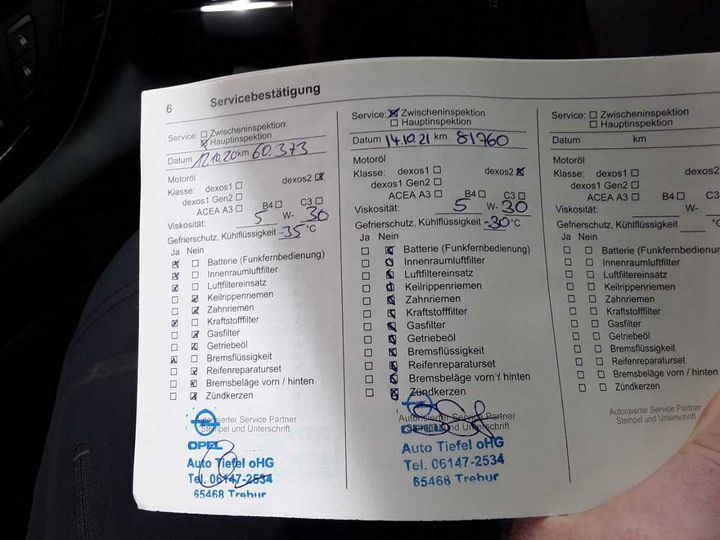 6 Servicebestätigung
Service: ☐ Zwischeninspektion
☒ Hauptinspektion
Datum 12.10.20 km 60.373
Motoröl
Klasse: dexos1 ☐ dexos2 ☒
dexos1 Gen2 ☐
ACEA A3 ☐ B4 ☐ C3 ☐
Viskosität: 5 W- 30
Gefrierschutz, Kühlflüssigkeit -35 °C
Ja Nein
☒ ☐ Batterie (Funkfernbedienung)
☒ ☐ Innenraumluftfilter
☒ ☐ Luftfiltereinsatz
☐ ☒ Keilrippenriemen
☐ ☒ Zahnriemen
☒ ☐ Kraftstofffilter
☐ ☒ Gasfilter
☐ ☒ Getriebeöl
☒ ☐ Bremsflüssigkeit
☐ ☒ Reifenreparaturset
☐ ☒ Bremsbeläge vorn / hinten
☐ ☒ Zündkerzen
Autorisierter Service Partner
Stempel und Unterschrift
OPEL
Auto Tiefel oHG
Tel. 06147-2534
65468 Trebur
Service: ☒ Zwischeninspektion
☐ Hauptinspektion
Datum 14.10.21 km 81760
Motoröl
Klasse: dexos1 ☐ dexos2 ☒
dexos1 Gen2 ☐
ACEA A3 ☐ B4 ☐ C3 ☐
Viskosität: 5 W- 30
Gefrierschutz, Kühlflüssigkeit -30 °C
Ja Nein
☐ ☒ Batterie (Funkfernbedienung)
☐ ☒ Innenraumluftfilter
☐ ☒ Luftfiltereinsatz
☐ ☒ Keilrippenriemen
☐ ☒ Zahnriemen
☐ ☒ Kraftstofffilter
☐ ☒ Gasfilter
☐ ☒ Getriebeöl
☐ ☒ Bremsflüssigkeit
☐ ☒ Reifenreparaturset
☐ ☒ Bremsbeläge vorn / hinten
☐ ☒ Zündkerzen
Autorisierter Service Partner
Stempel und Unterschrift
OPEL
Auto Tiefel oHG
Tel. 06147-2534
65468 Trebur
Service: ☐ Zwischeninspektion
☐ Hauptinspektion
Datum km
Motoröl
Klasse: dexos1 ☐
dexos1 Gen2 ☐
ACEA A3 ☐ B4 ☐
Viskosität: W-
Gefrierschutz, Kühlflüssigkeit °C
Ja Nein
☐ ☐ Batterie (Funkfernbedienung)
☐ ☐ Innenraumluftfilter
☐ ☐ Luftfiltereinsatz
☐ ☐ Keilrippenriemen
☐ ☐ Zahnriemen
☐ ☐ Kraftstofffilter
☐ ☐ Gasfilter
☐ ☐ Getriebeöl
☐ ☐ Bremsflüssigkeit
☐ ☐ Reifenreparaturset
☐ ☐ Bremsbeläge vorn / hinten
☐ ☐ Zündkerzen
Autorisierter Service Partner
Stempel und Unterschrift